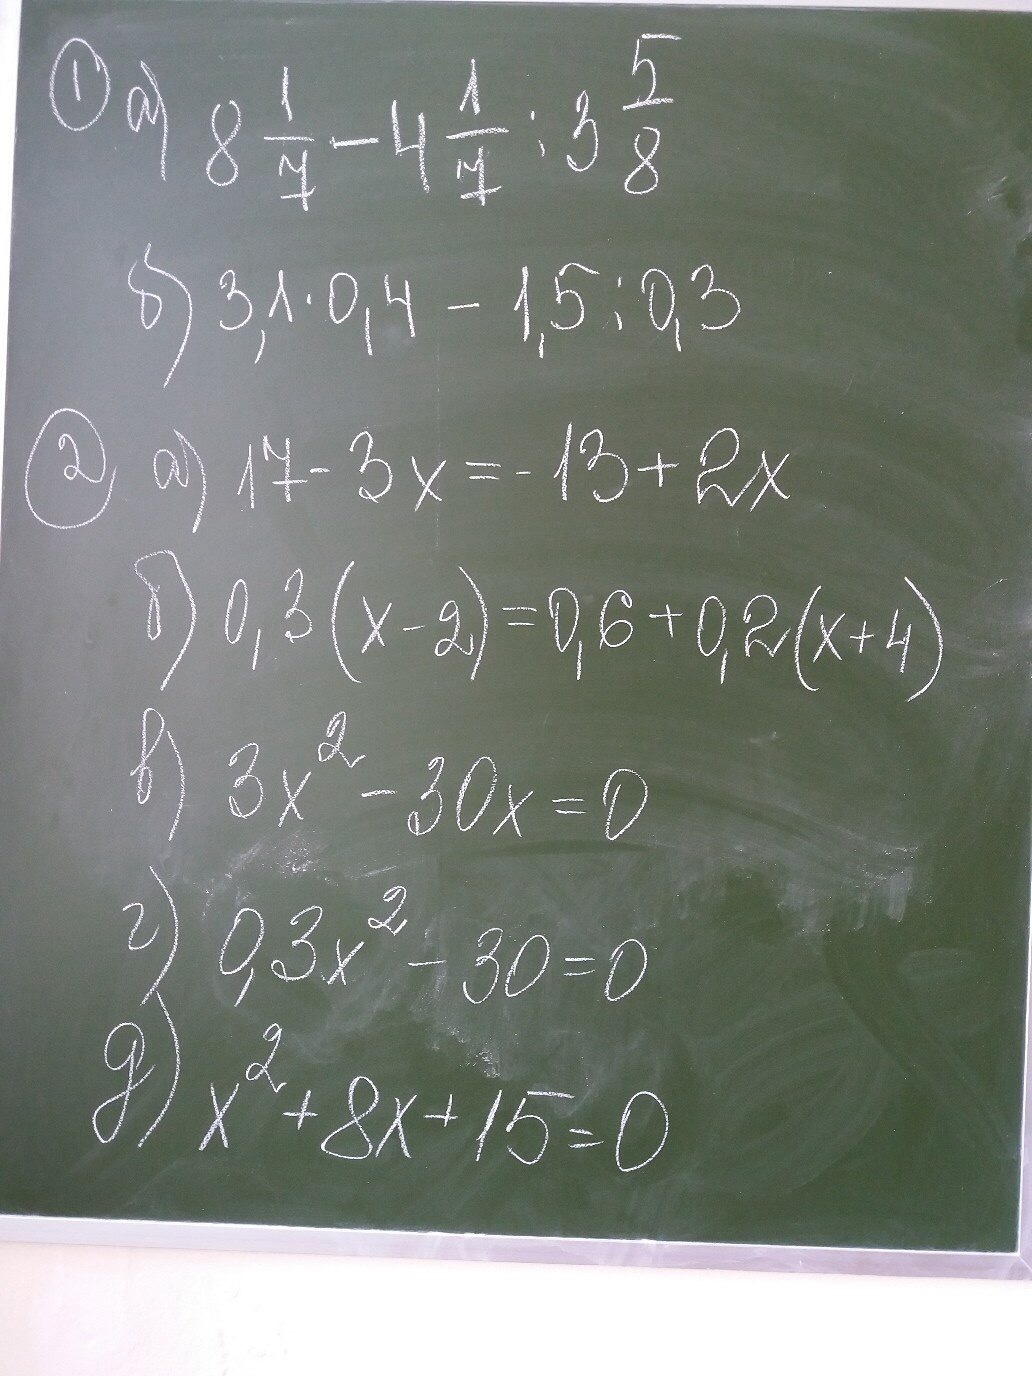 ① а) 8 1/7 - 4 1/7 : 3 5/8
б) 3,1 · 0,4 - 1,5 : 0,3
② а) 17 - 3x = -13 + 2x
б) 0,3(x-2) = 0,6 + 0,2(x+4)
в) 3x² - 30x = 0
г) 0,3x² - 30 = 0
д) x² + 8x + 15 = 0